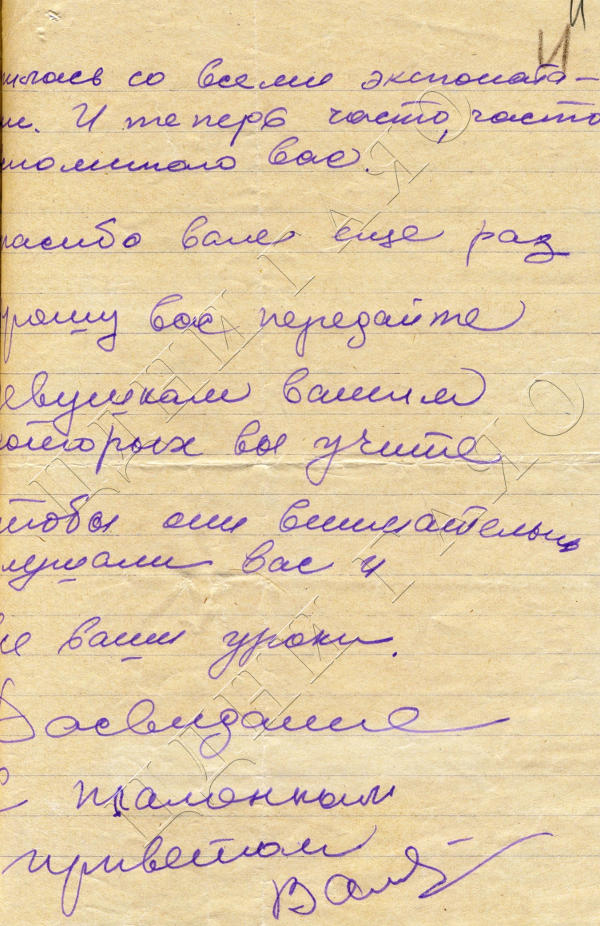 И
шлась со всеми экспоната-
ми. И теперь часто, часто
поминаю вас.
пасибо вам еще раз
рошу вас передайте
евушкам вашим
которых вы учите
чтобы они внимательно
лушали вас и
се ваши уроки.
Досвидание
С пламенным
приветом
Валя